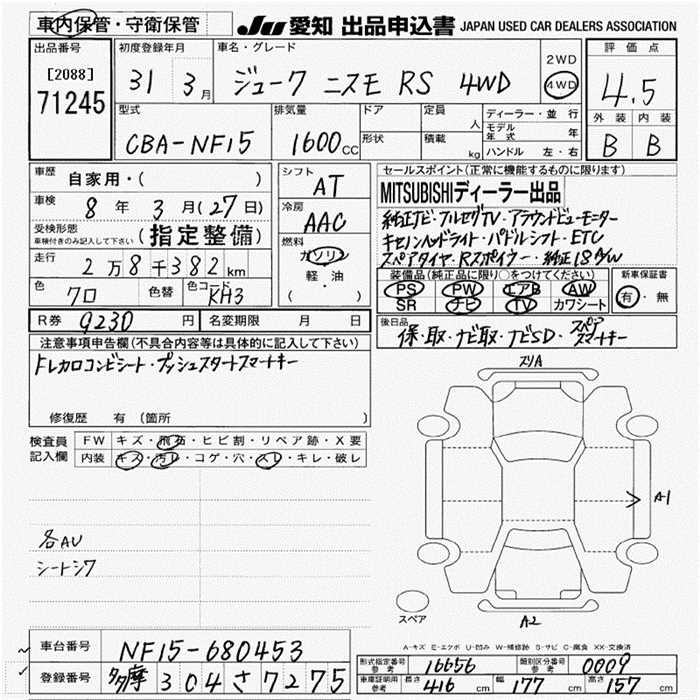 車内保管・守衛保管 JU 愛知 出品申込書 JAPAN USED CAR DEALERS ASSOCIATION
出品番号 初度登録年月 車名・グレード 評価点
[2088] 71245 31 3月 ジューク ニスモ RS 4WD 2WD 4WD 4.5
型式 排気量 ドア 定員 人 ディーラー・並行 外装 内装
CBA-NF15 1600CC 形状 積載 kg モデル年式 年 B B
ハンドル 左・右
車歴 自家用・( ) シフト AT セールスポイント(正常に機能するものに限ります)
車検 8年 3月(27日) 冷房 AAC MITSUBISHIディーラー出品
受検形態 車検付きのみ記入して下さい (指定整備) 燃料 ガソリン 軽・油 ( )
純正ナビ・フルセグTV・アラウンドビューモニター
キセノンヘッドライト・パドルシフト・ETC
スペアタイヤ・Rスポイラー・純正18AW
走行 2万8千382km
装備品(純正品に限り○をつけてください) 新車保証書
色 クロ 色替 色コード KH3 PS PW エアB AW 有・無
SR ナビ TV カワシート
R券 9230円 名変期限 月 日 後日品
保・取・ナビ取・ナビSD・スペアスマートキー
注意事項申告欄(不具合内容等は具体的に記入して下さい)
ドレカロコンビシート・プッシュスタートスマートキー
修復歴 有(箇所
検査員記入欄 FW キズ・飛石・ヒビ割・リペア跡・X要
内装 キズ・汚レ・コゲ・穴・スレ・キレ・破レ
スリA
A1
各AU
シートシワ
スペア A2
A-キズ E-エクボ U-凹み W-補修跡 S-サビ C-腐食 XX-交換済
車台番号 NF15-680453 形式指定番号 参考 16656 類別区分番号 参考 0009
登録番号 多摩304さ7275 車庫証明用 参考 長さ 416cm 幅 177cm 高さ 157cm